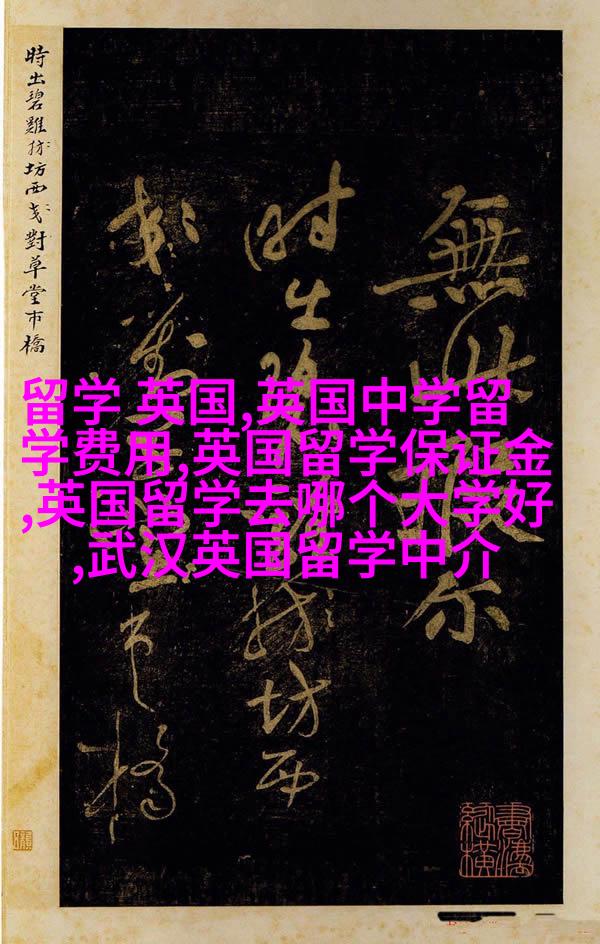 時出碧雞坊西對草堂市橋
無
時出碧雞坊西
對草堂市橋
留学 英国,英国中学留
学费用,英国留学保证金
,英国留学去哪个大学好
,武汉英国留学中介